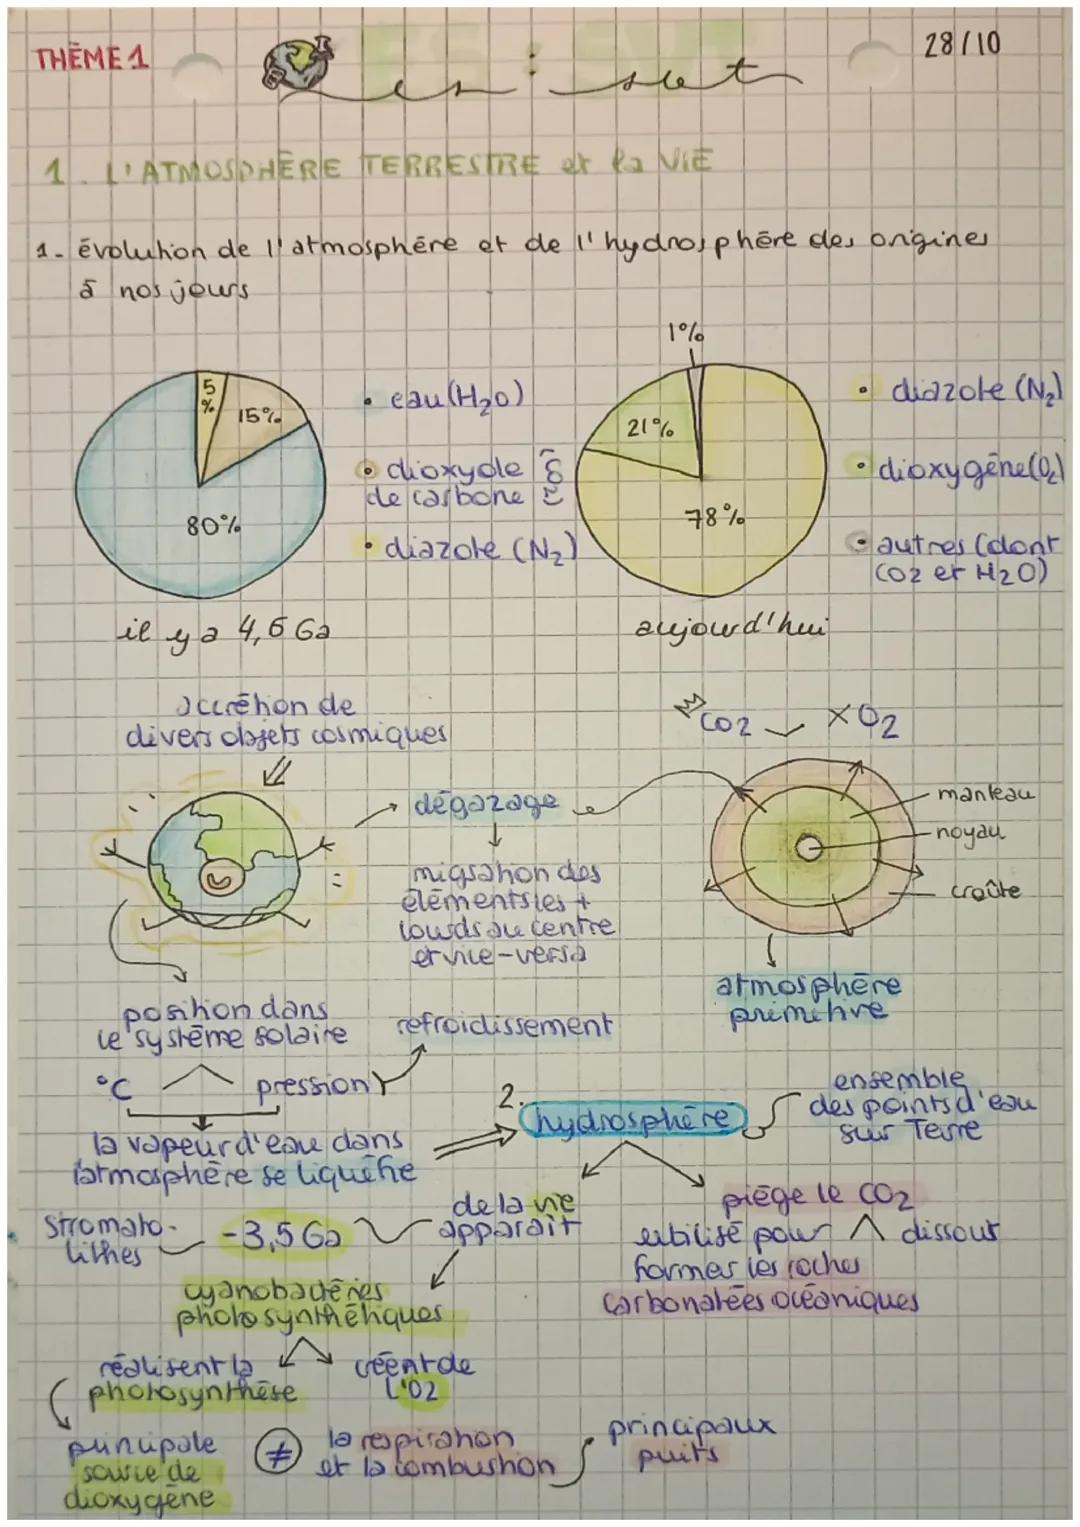 THÈME 1
es : svt
28/10
1. L'ATMOSPHÈRE TERRESTRE et la VIE
1- évolution de l'atmosphère et de l'hydrosphère des origines
à nos jours
5%
15%
80%
il y a 4,6 Ga
• eau (H2O)
• dioxyde
de carbone
CO2
• diazote (N2)
1%
21%
78%
aujourd'hui
• diazote (N2)
• dioxygène (O2)
• autres (dont
CO2 et H2O)
accrétion de
divers objets cosmiques
dégazage
migration des
éléments les +
lourds au centre
et vice-versa
CO2
X O2
manteau
noyau
croûte
atmosphère
primitive
position dans
le système solaire
refroidissement
°C
pression
la vapeur d'eau dans
l'atmosphère se liquéfie
2.
hydrosphère
ensemble
des points d'eau
sur Terre
stromato-
lithes
-3,5 Ga
de la vie
apparaît
piège le CO2
utilisé pour
former les roches
carbonatées océaniques
dissout
cyanobactéries
photosynthétiques
réalisent la
photosynthèse
créent de
l'O2
principale
source de
dioxygène
≠
la respiration
et la combustion
principaux
puits